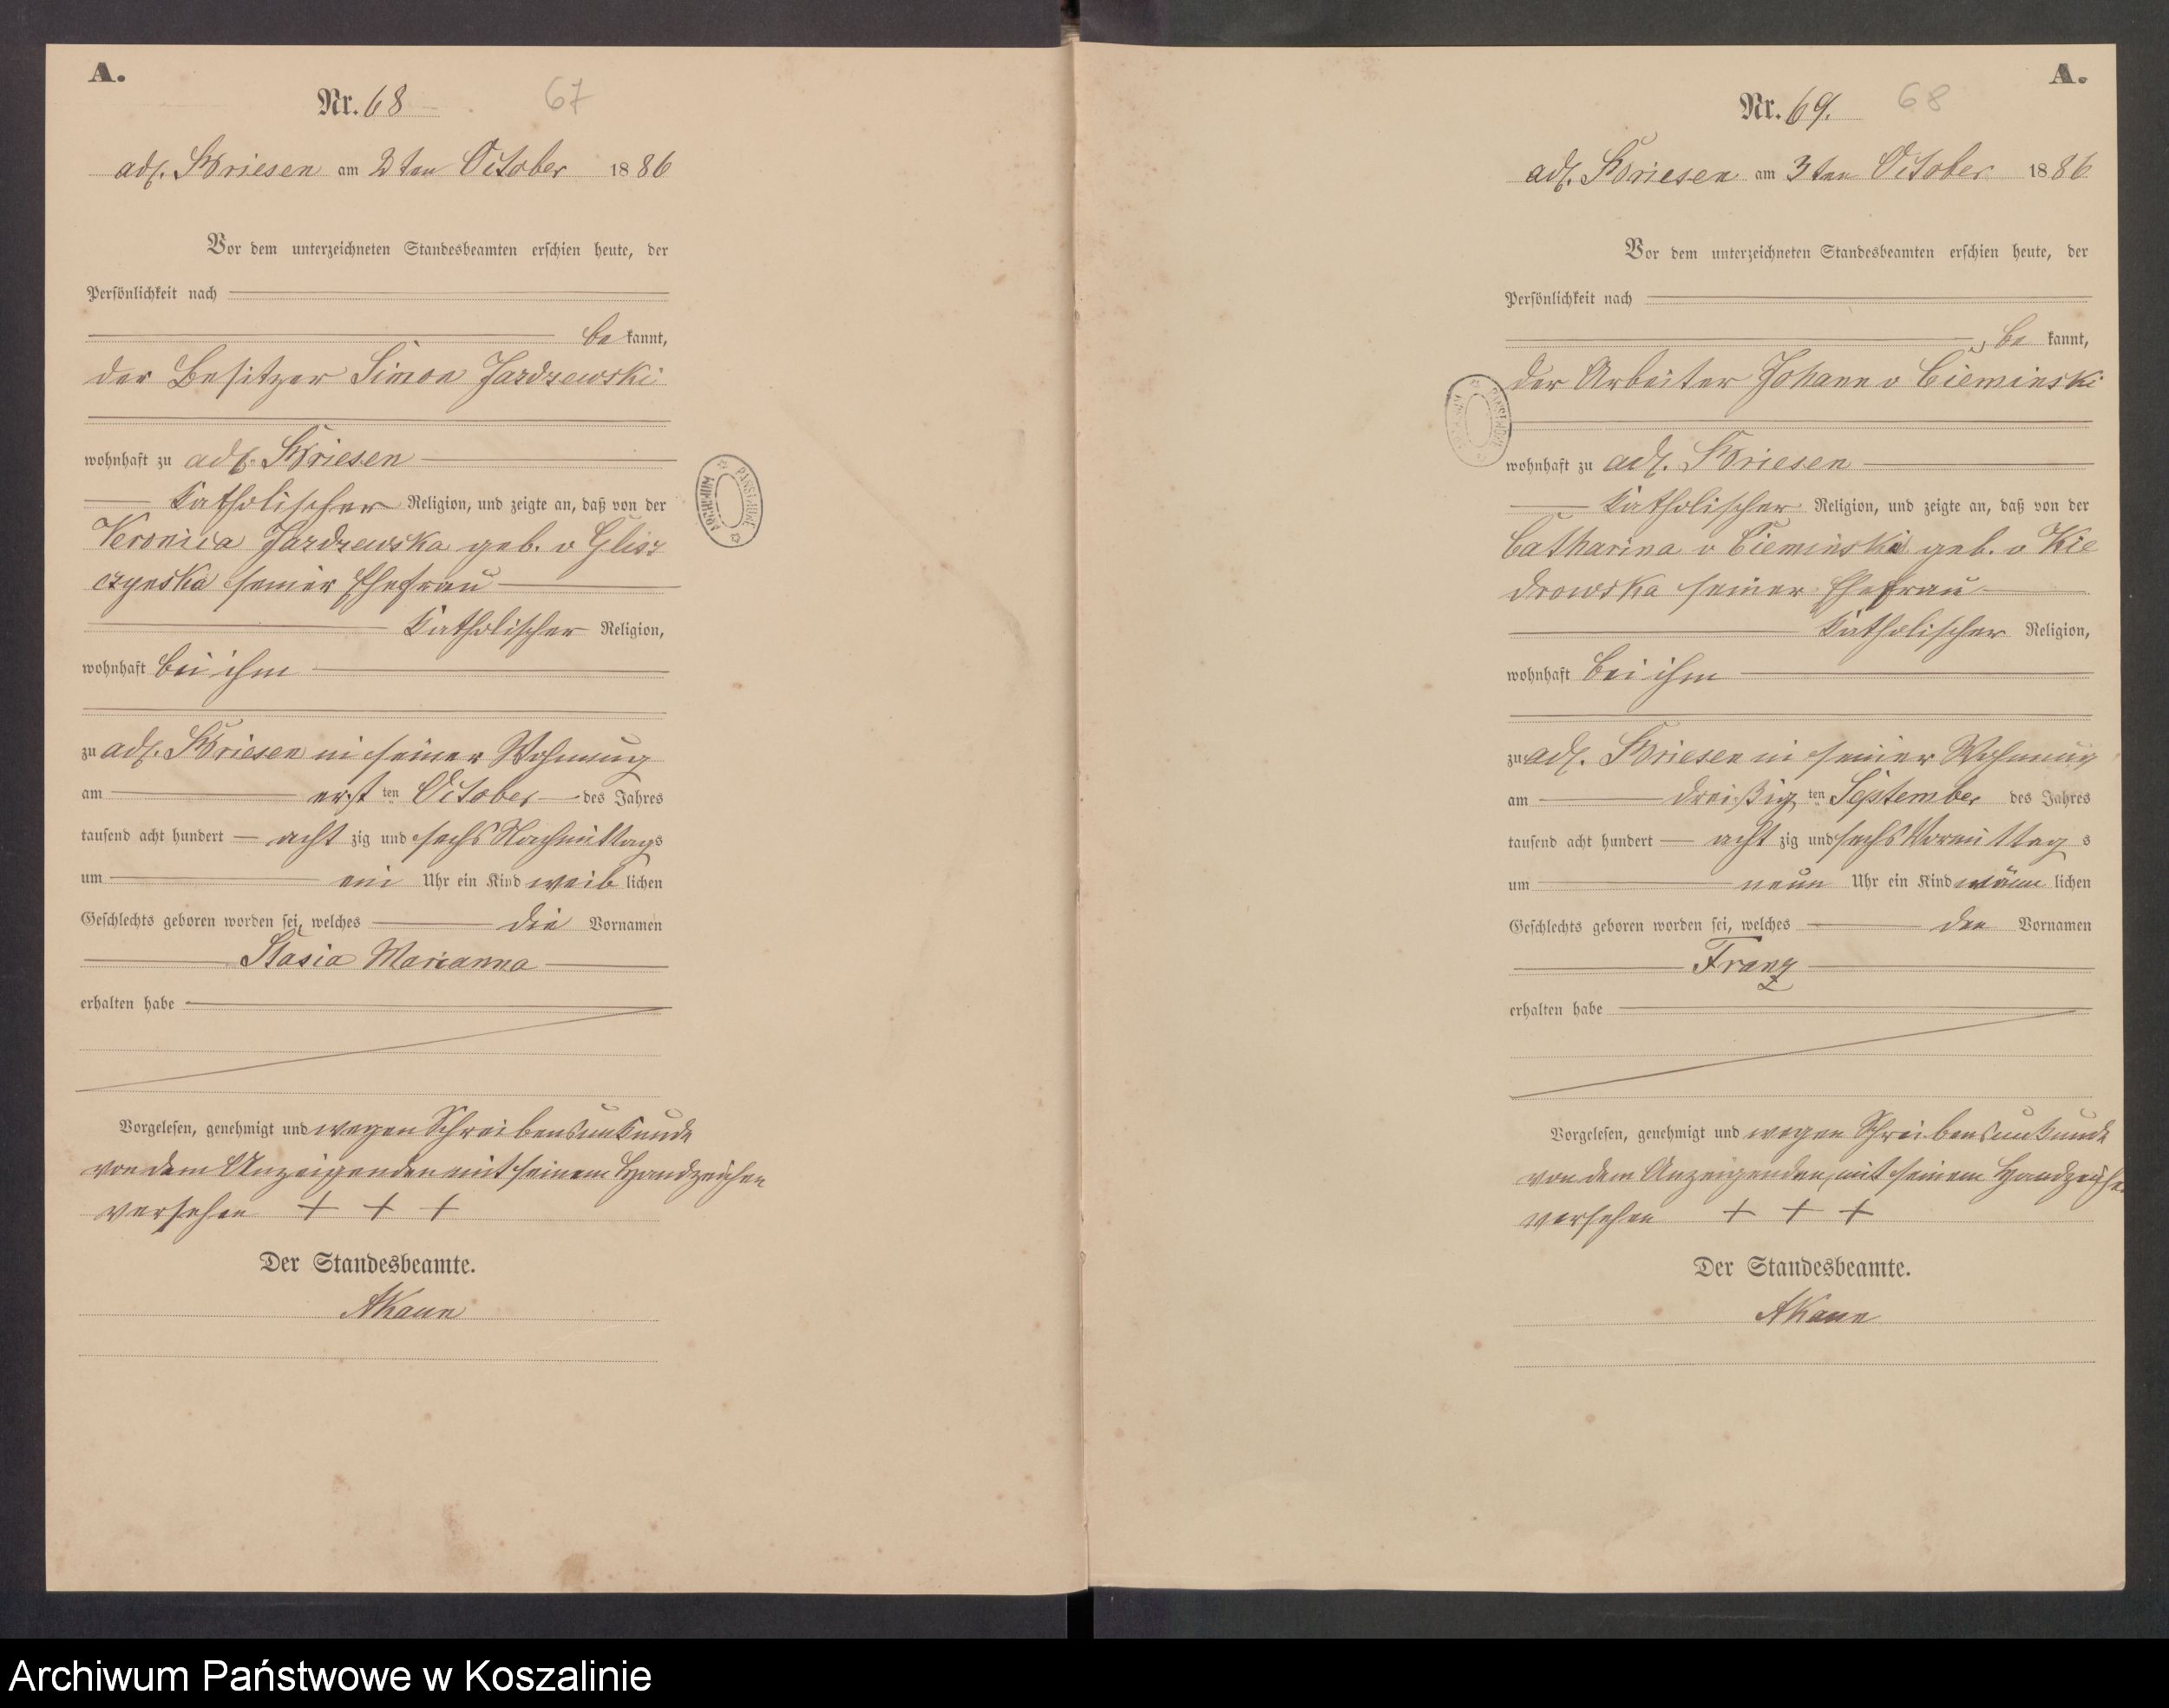 A.
Nr. 68
67
adl. Briesen am 2ten October 1886
Vor dem unterzeichneten Standesbeamten erschien heute, der
Persönlichkeit nach
be kannt,
der Besitzer Simon Jardzewski
wohnhaft zu adl. Briesen
katholischer Religion, und zeigte an, daß von der
Veronica Jardzewska geb. v Glisz
czynska seiner Ehefrau
katholischer Religion,
wohnhaft bei ihm
zu adl. Briesen in seiner Wohnung
am erst ten October des Jahres
tausend acht hundert acht zig und sechs Nachmittags
um ein Uhr ein Kind weib lichen
Geschlechts geboren worden sei, welches die Vornamen
Stasia Marianna
erhalten habe
Vorgelesen, genehmigt und wegen Schreibensunkunde
von dem Anzeigenden mit seinem Handzeichen
versehen + + +
Der Standesbeamte.
AKaun
ARCHIWUM PAŃSTWOWE
A.
Nr. 69.
68
adl. Briesen am 3ten October 1886
Vor dem unterzeichneten Standesbeamten erschien heute, der
Persönlichkeit nach
be kannt,
der Arbeiter Johann v Cieminski
wohnhaft zu adl. Briesen
katholischer Religion, und zeigte an, daß von der
Catharina v Cieminski geb. v Kie
drowska seiner Ehefrau
katholischer Religion,
wohnhaft bei ihm
zu adl. Briesen in seiner Wohnung
am dreißig ten September des Jahres
tausend acht hundert acht zig und sechs Vormittag s
um neun Uhr ein Kind männ lichen
Geschlechts geboren worden sei, welches den Vornamen
Franz
erhalten habe
Vorgelesen, genehmigt und wegen Schreibensunkunde
von dem Anzeigenden mit seinem Handzeichen
versehen + + +
Der Standesbeamte.
AKaun
Archiwum Państwowe w Koszalinie